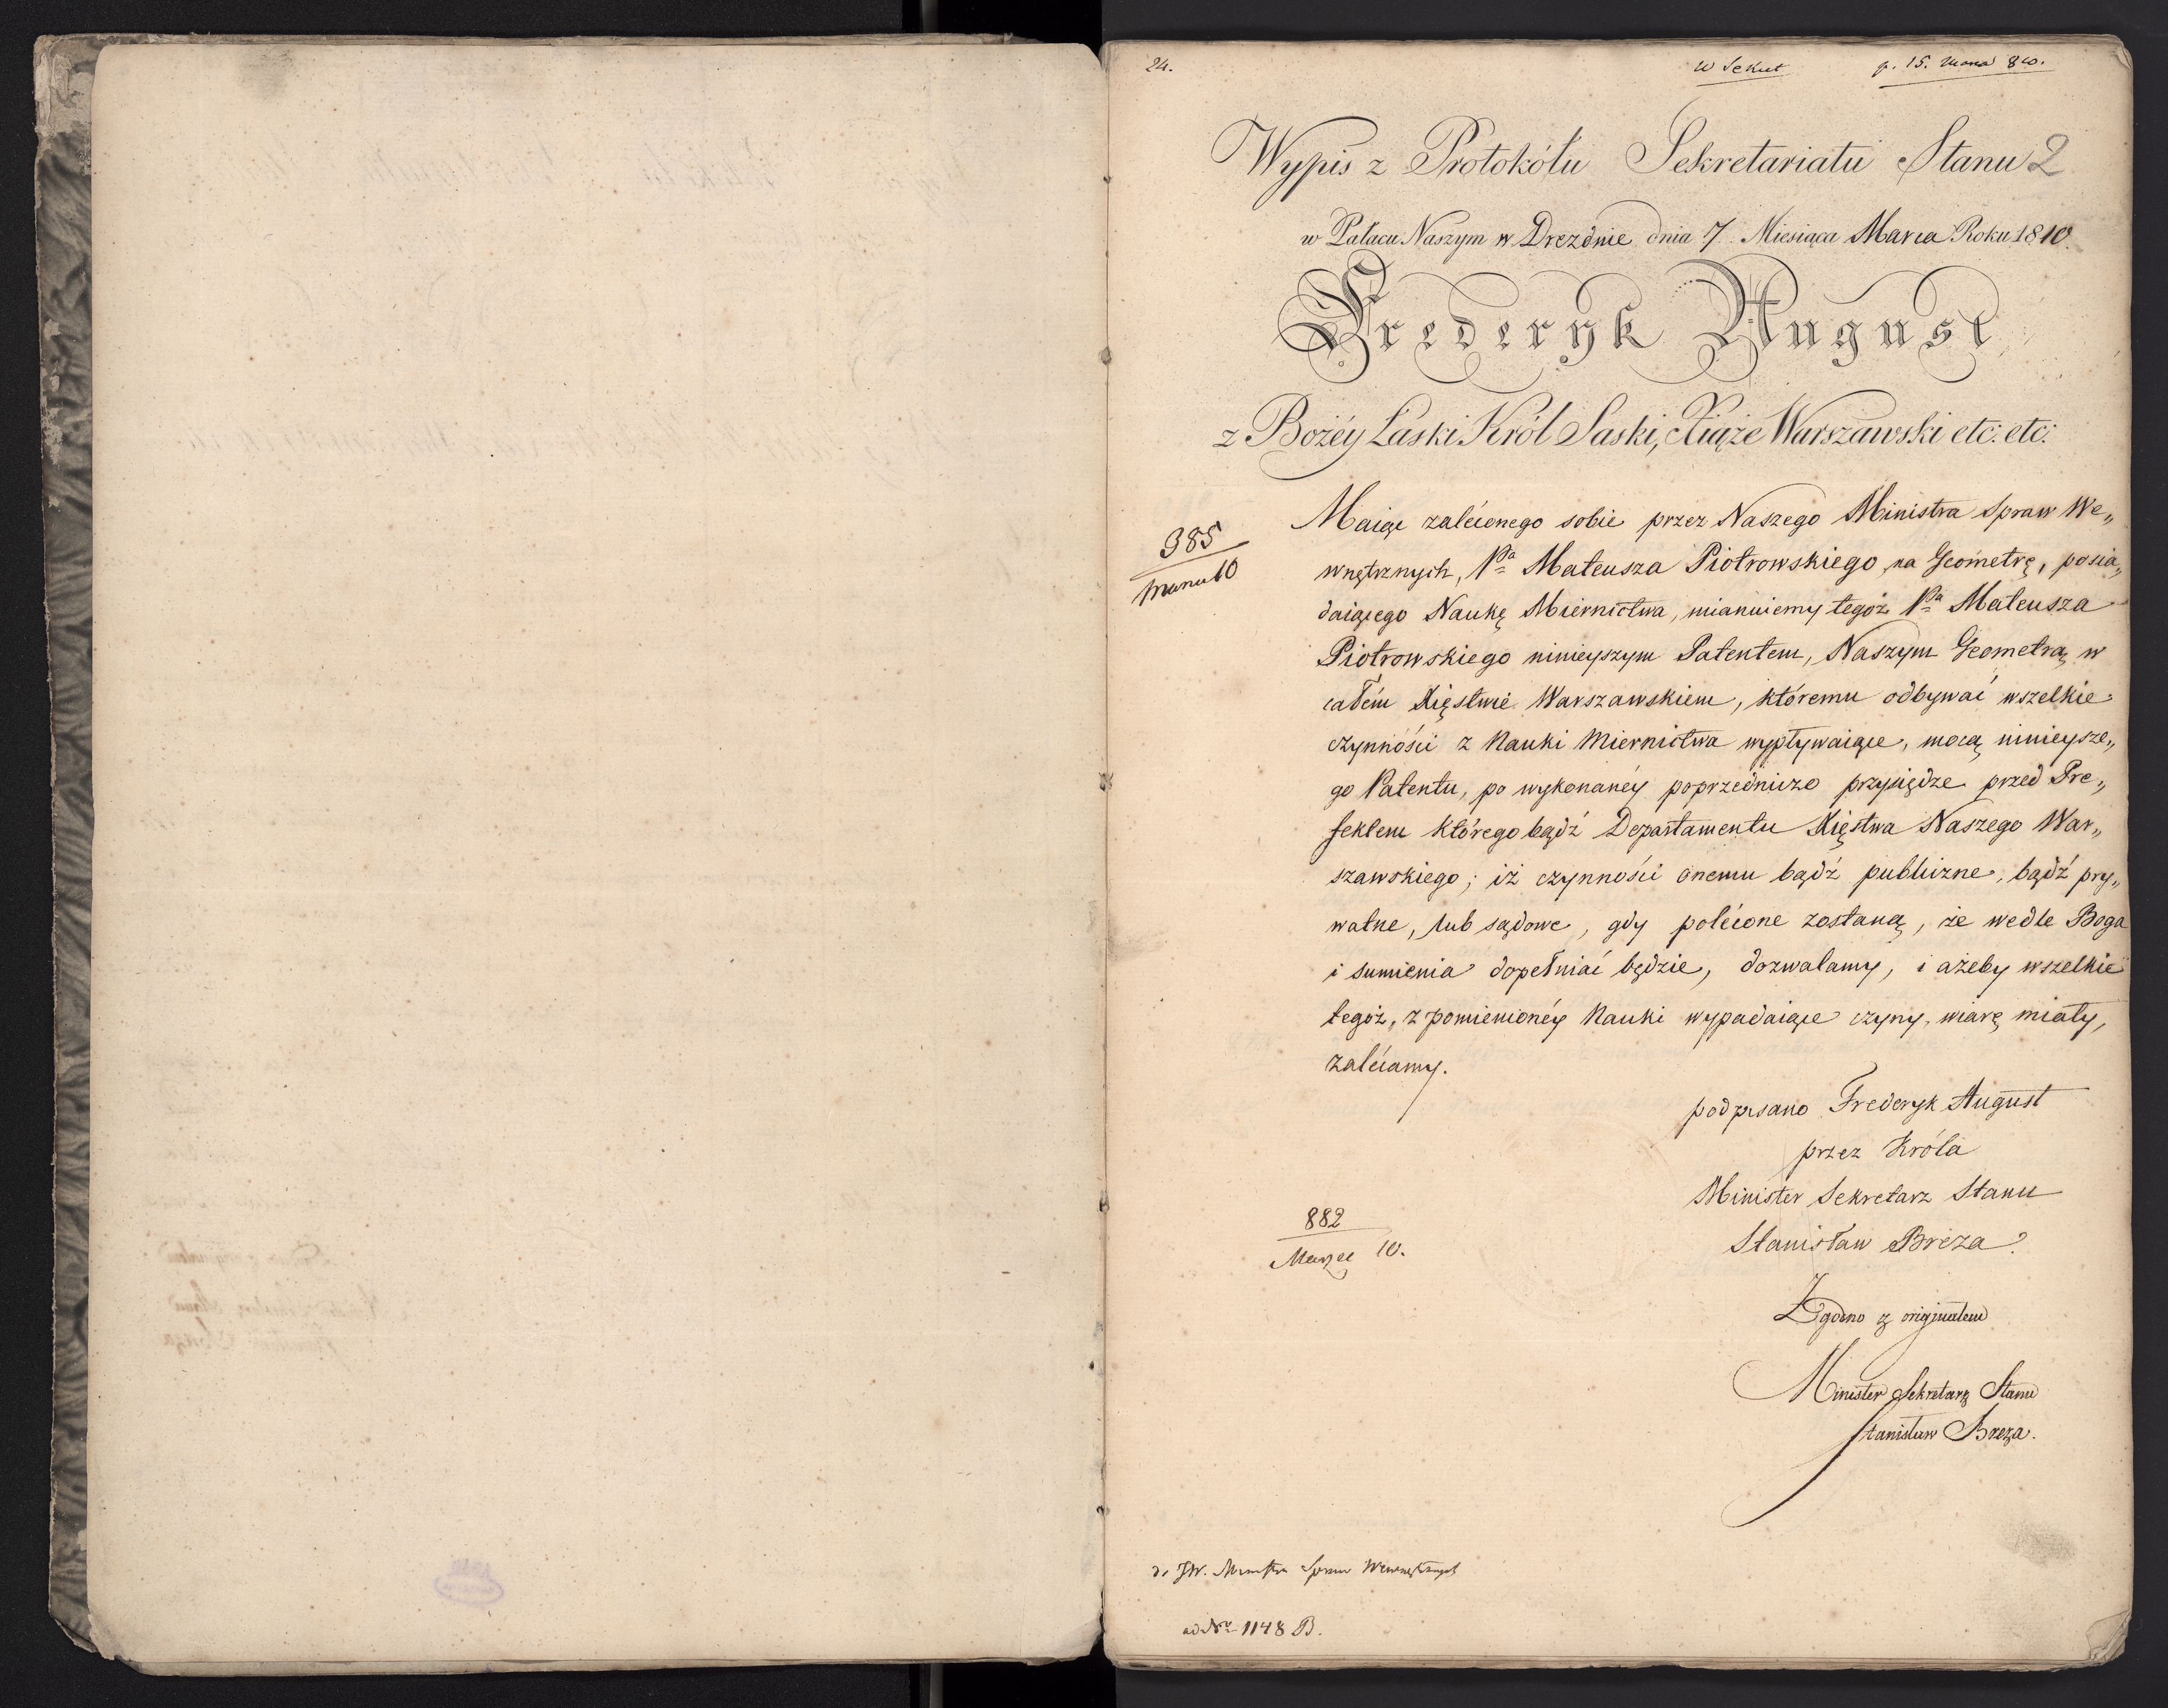 24.
W Sekret p. 15. Marca 810.
Wypis z Protokółu Sekretariatu Stanu 2
w Pałacu Naszym w Dreznie dnia 7 Miesiąca Marca Roku 1810.
Frederyk August
z Bożéy Łaski Król Saski, Xiąże Warszawski etc: etc:
385
10
Maiąc zalécenego sobie przez Naszego Ministra Spraw We„
wnętrznych, Pa Mateusza Piotrowskiego, na Geometrę, posia„
daiącego Naukę Miernictwa, mianuiemy tegoż Pa Mateusza
Piotrowskiego ninieyszym Patentem, Naszym Geometrą w
całém Xięstwie Warszawskiem, któremu odbywać wszelkie
czynności z Nauki Miernictwa wypływaiące, mocą ninieysze„
go Patentu, po wykonanéy poprzedniczo przysiędze przed Pre„
fektem którego bądź Departamentu Xięstwa Naszego War„
szawskiego; iż czynności onemu bądź publiczne, bądź pry„
watne, lub sądowe, gdy polécone zostaną, że wedle Boga
i sumienia dopełniać będzie, dozwalamy, i ażeby wszelkie
tegoż, z pomienionéy Nauki wypadaiące czyny, wiarę miały,
zalécamy.
podpisano Frederyk August
przez Króla
Minister Sekretarz Stanu
Stanisław Breza
882
Marzec 10.
Zgodno z originałem
Minister Sekretarz Stanu
Stanisław Breza.
do JW. Ministra Spraw Wewnętrznych
ad Nr 1148 B.